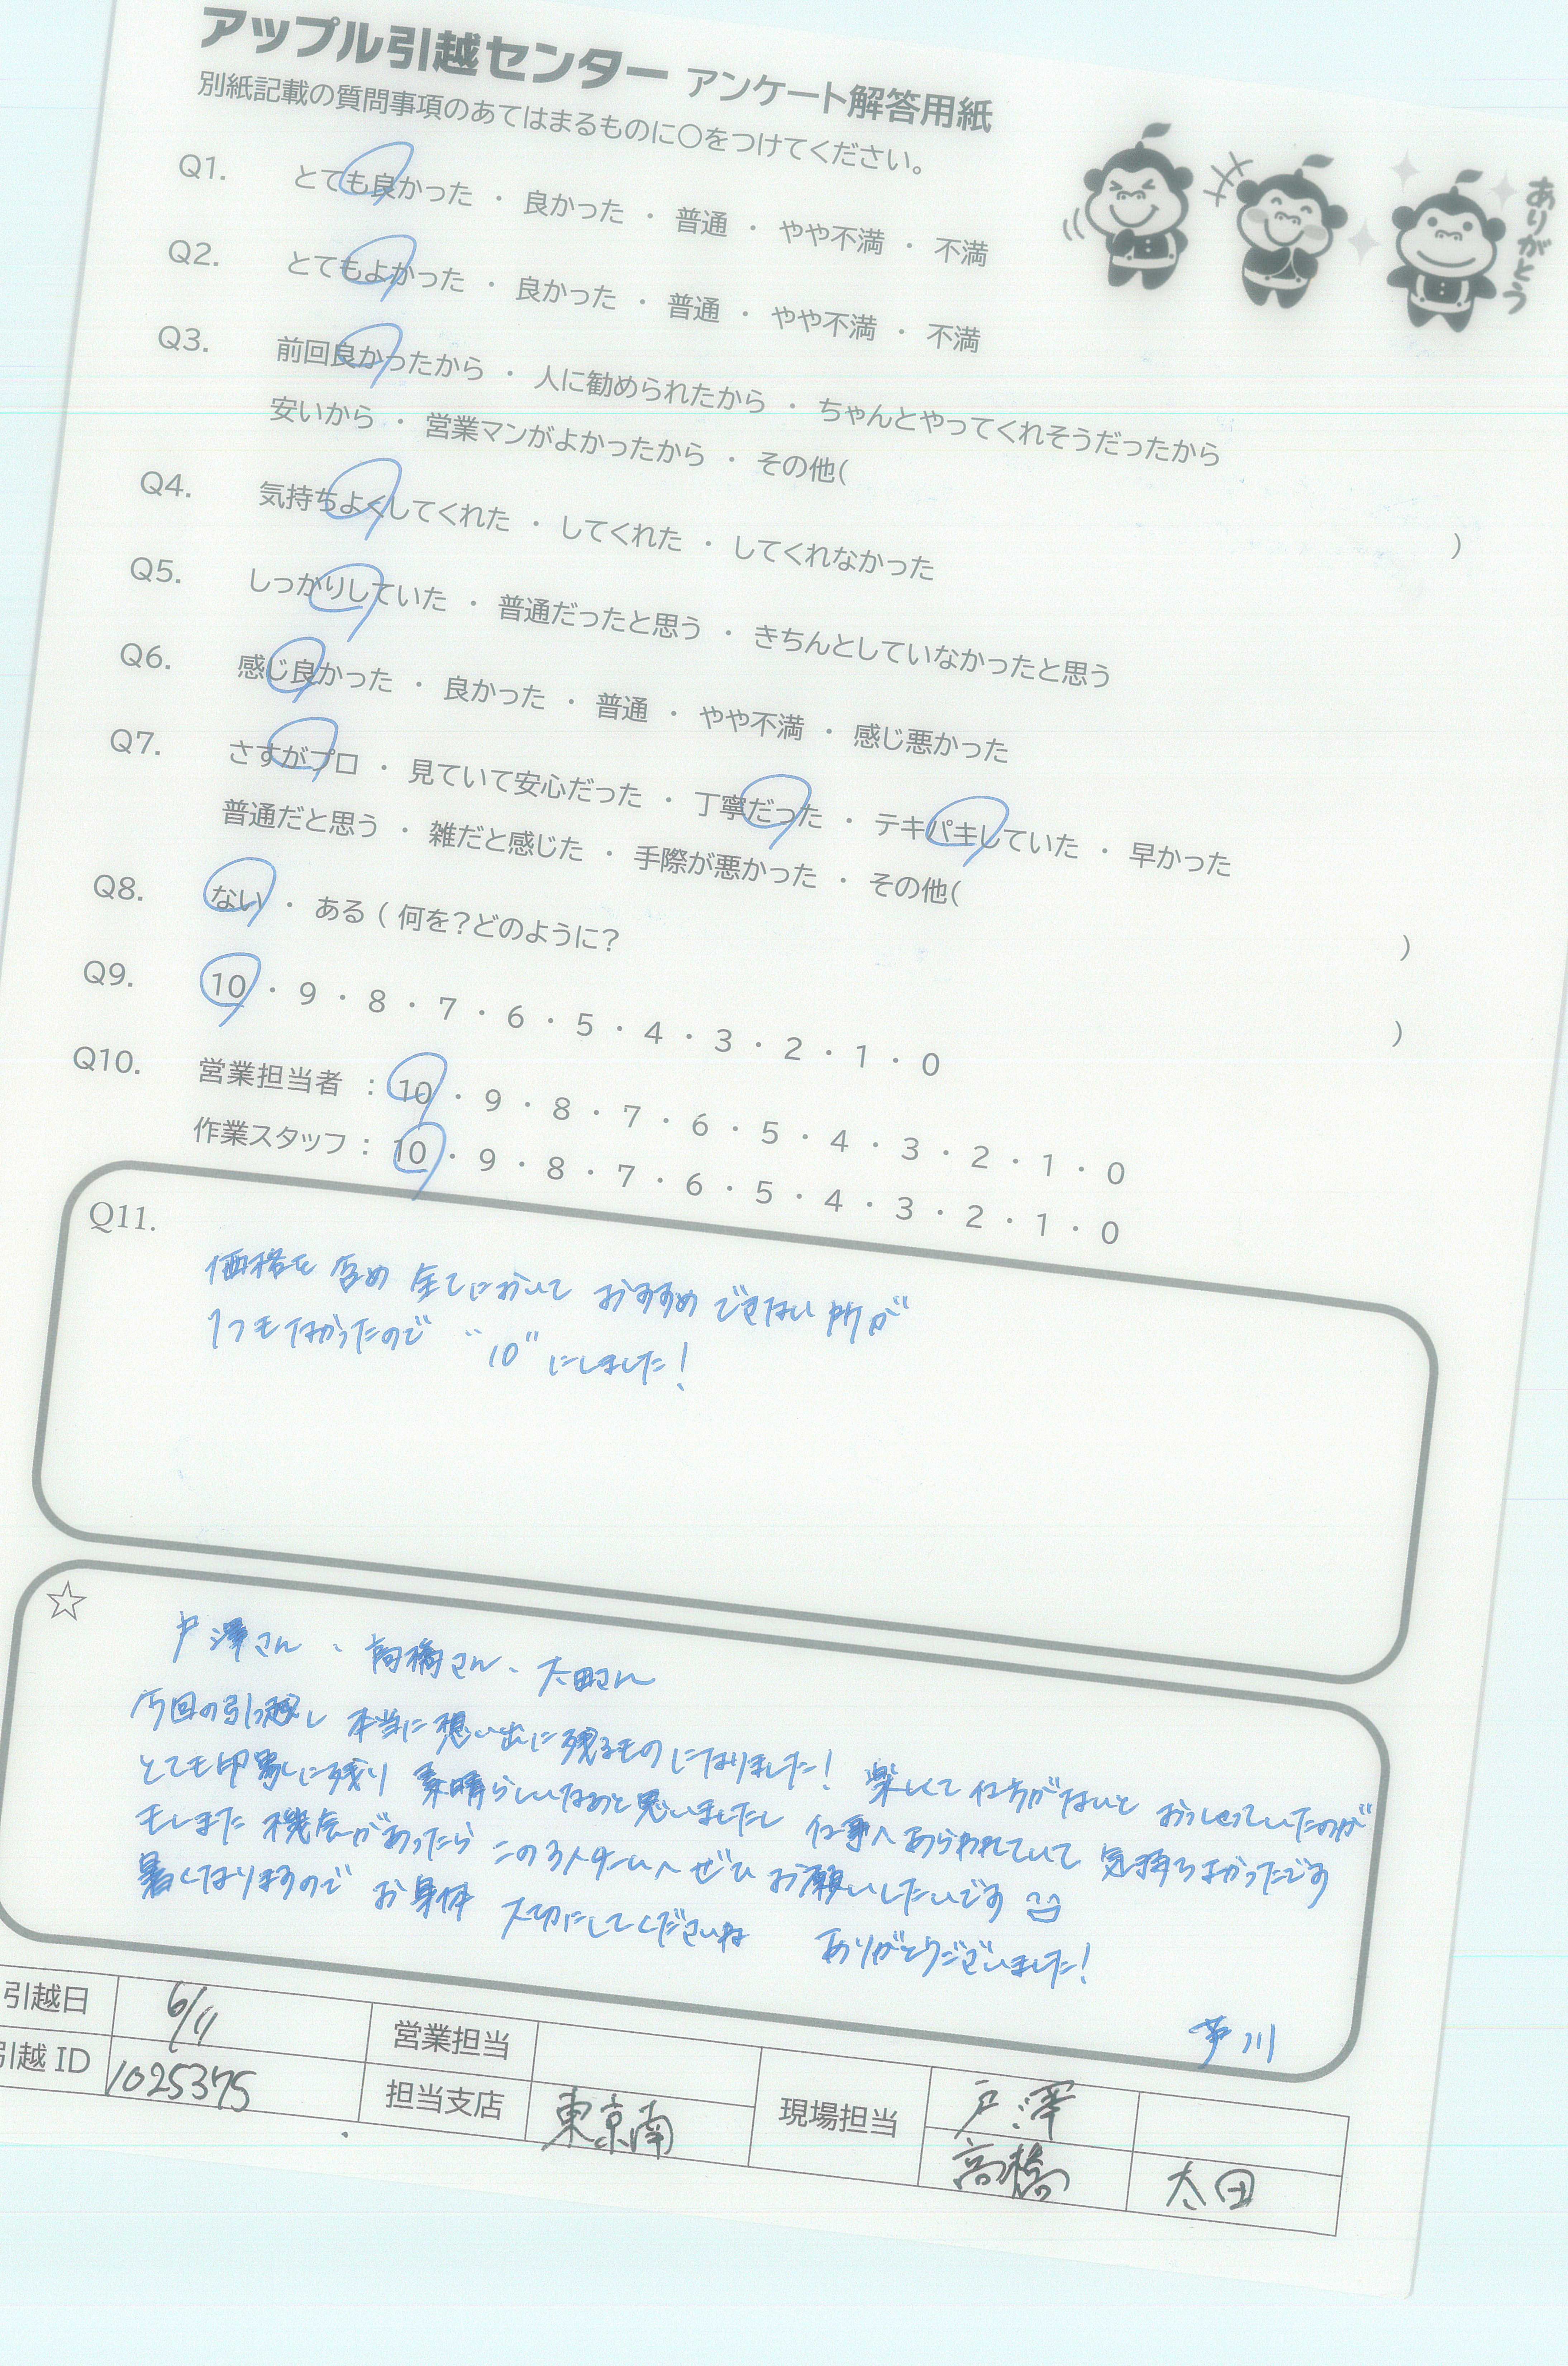 アップル引越センター アンケート解答用紙
別紙記載の質問事項のあてはまるものに〇をつけてください。
ありがとう
Q1. とても良かった ・ 良かった ・ 普通 ・ やや不満 ・ 不満
Q2. とてもよかった ・ 良かった ・ 普通 ・ やや不満 ・ 不満
Q3. 前回良かったから ・ 人に勧められたから ・ ちゃんとやってくれそうだったから
安いから ・ 営業マンがよかったから ・ その他( )
Q4. 気持ちよくしてくれた ・ してくれた ・ してくれなかった
Q5. しっかりしていた ・ 普通だったと思う ・ きちんとしていなかったと思う
Q6. 感じ良かった ・ 良かった ・ 普通 ・ やや不満 ・ 感じ悪かった
Q7. さすがプロ ・ 見ていて安心だった ・ 丁寧だった ・ テキパキしていた ・ 早かった
普通だと思う ・ 雑だと感じた ・ 手際が悪かった ・ その他( )
Q8. ない ・ ある ( 何を?どのように? )
Q9. 10 ・ 9 ・ 8 ・ 7 ・ 6 ・ 5 ・ 4 ・ 3 ・ 2 ・ 1 ・ 0
Q10. 営業担当者 : 10 ・ 9 ・ 8 ・ 7 ・ 6 ・ 5 ・ 4 ・ 3 ・ 2 ・ 1 ・ 0
作業スタッフ : 10 ・ 9 ・ 8 ・ 7 ・ 6 ・ 5 ・ 4 ・ 3 ・ 2 ・ 1 ・ 0
Q11.
価格を含め 全てにおいて おすすめ できない 所が
1つもなかったので "10" にしました!
☆
戸澤さん、高橋さん、太田さん
今回の引っ越し 本当に思い出に残るものになりました! 楽しくて仕方がないと おっしゃっていたのが
とても印象に残り 素晴らしいなあと思いましたし 仕事へあらわれていて 気持ちよかったです
もしまた 機会があったら この3人にぜひ お願いしたいです
暑くなりますので お身体 大切にしてくださいね ありがとうございました!
芦川
引越日 6/11 営業担当
引越 ID 1025375 担当支店 東京南 現場担当 戸澤
高橋 太田